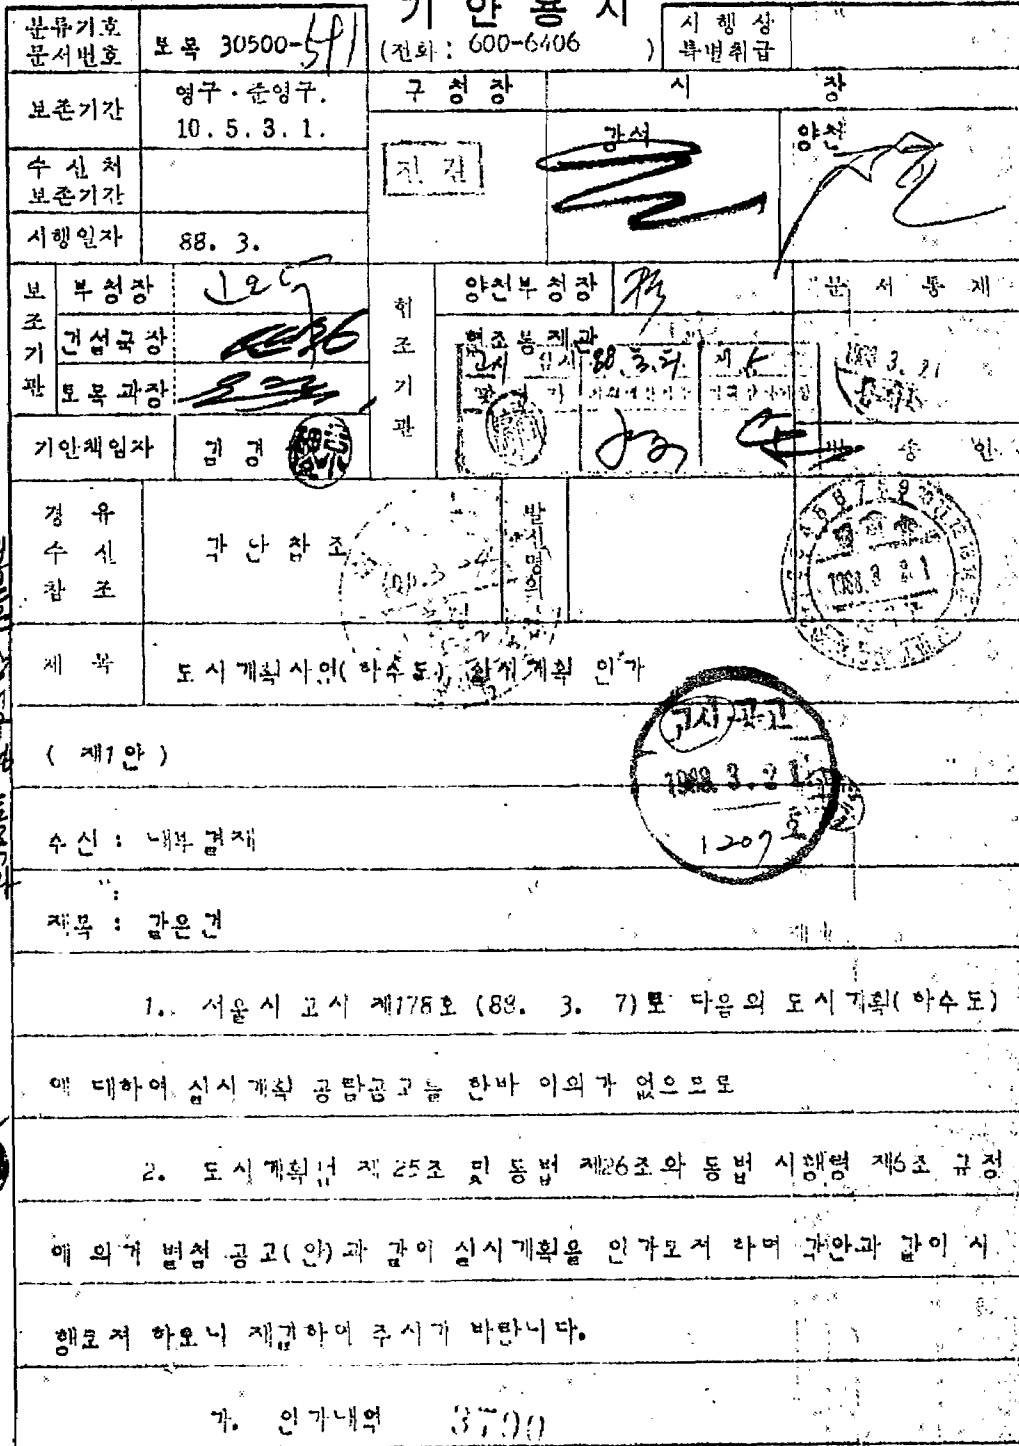 기안용지
분류기호
문서번호
토목 30500-591
(전화 : 600-6406 )
시행상
특별취급
보존기간
영구·준영구.
10. 5. 3. 1.
구청장
시 장
전결
강서
양천
수신처
보존기간
시행일자
88. 3.
보조기관
부청장
건설국장
토목과장
협조기관
양천부청장
협조통제관
문서통제
고시
88. 3. 21
1988 3. 21
기안책임자
김경
발송인
경유
수신
참조
각안참조
발신명의
1988. 3. 21
제목
도시계획사업(하수도) 실시계획 인가
고시공고
1988. 3. 21
1207호
( 제1안 )
수신 : 내부결재
제목 : 같은건
1. 서울시 고시 제178호 (88. 3. 7)로 다음의 도시계획(하수도)
에 대하여 실시계획 공람공고를 한바 이의가 없으므로
2. 도시계획법 제25조 및 동법 제26조와 동법 시행령 제6조 규정
에 의거 별첨 공고(안)과 같이 실시계획을 인가코저 하며 각안과 같이 시
행코저 하오니 재결하여 주시기 바랍니다.
가. 인가내역